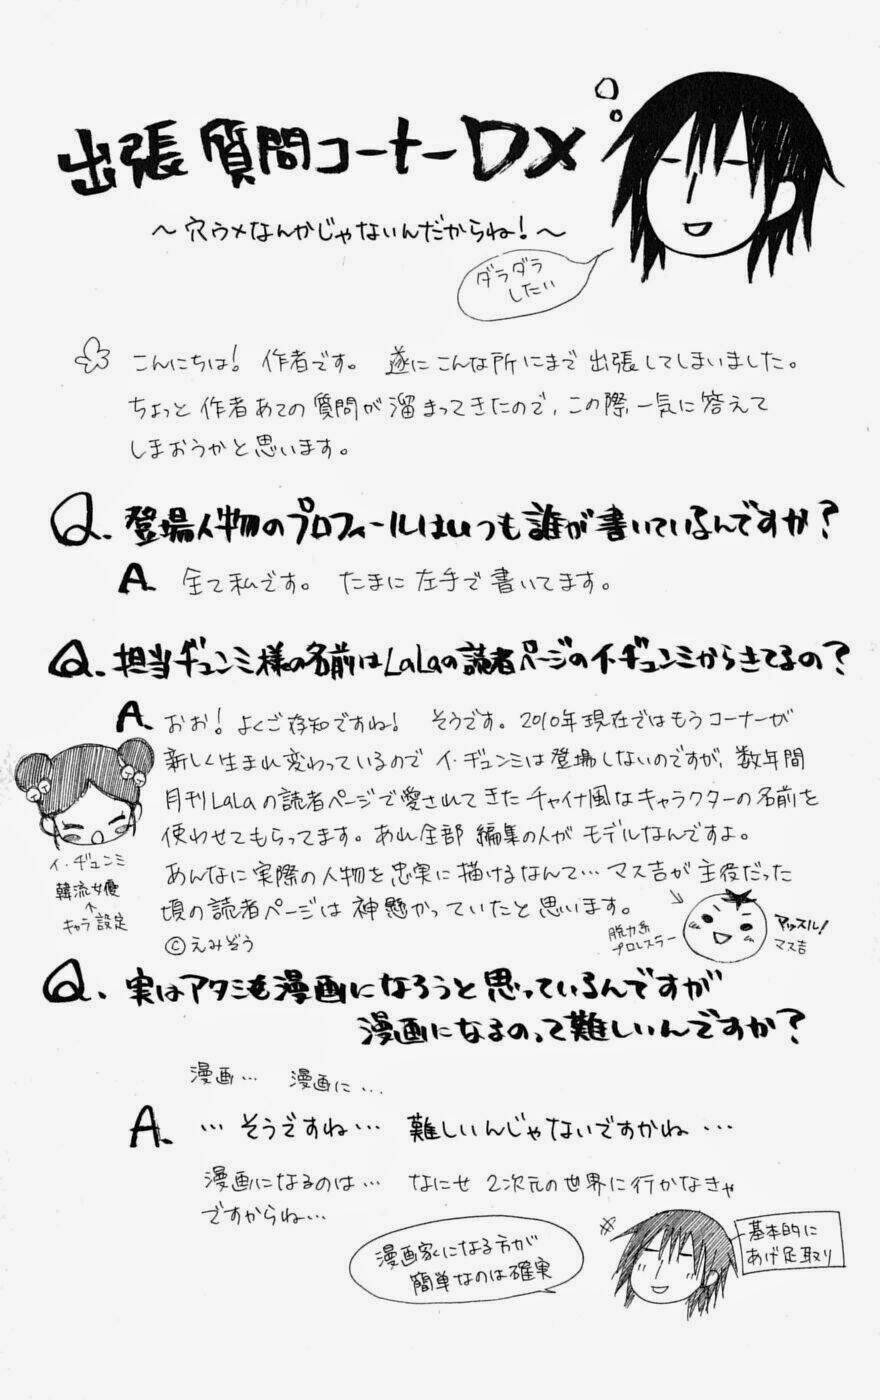 出張質問コーナーDX
～穴ウメなんかじゃないんだからね！～
ダラダラ
したい
こんにちは！ 作者です。 遂にこんな所にまで出張してしまいました。
ちょっと作者あての質問が溜まってきたので、この際一気に答えて
しまおうかと思います。
Q. 登場人物のプロフィールはいつも誰が書いているんですか？
A. 全て私です。 たまに左手で書いてます。
Q. 担当ヂュンミ様の名前はLaLaの読者ページのイ・ヂュンミからきてるの？
A. おお！よくご存知ですね！ そうです。2010年現在ではもうコーナーが
新しく生まれ変わっているのでイ・ヂュンミは登場しないのですが、数年間
月刊LaLaの読者ページで愛されてきたチャイナ風なキャラクターの名前を
使わせてもらってます。あれ全部編集の人がモデルなんですよ。
あんなに実際の人物を忠実に描けるなんて…マス吉が主役だった
頃の読者ページは神懸かっていたと思います。
©えみぞう
イ・ヂュンミ
韓流女優
↑
キャラ設定
脱力系
プロレスラー
アッスル！
マス吉
Q. 実はアタシも漫画になろうと思っているんですが
漫画になるのって難しいんですか？
漫画… 漫画に…
A. …そうですね… 難しいんじゃないですかね…
漫画になるのは… なにせ 2次元の世界に行かなきゃ
ですからね…
漫画家になる方が
簡単なのは確実
基本的に
あげ足取り